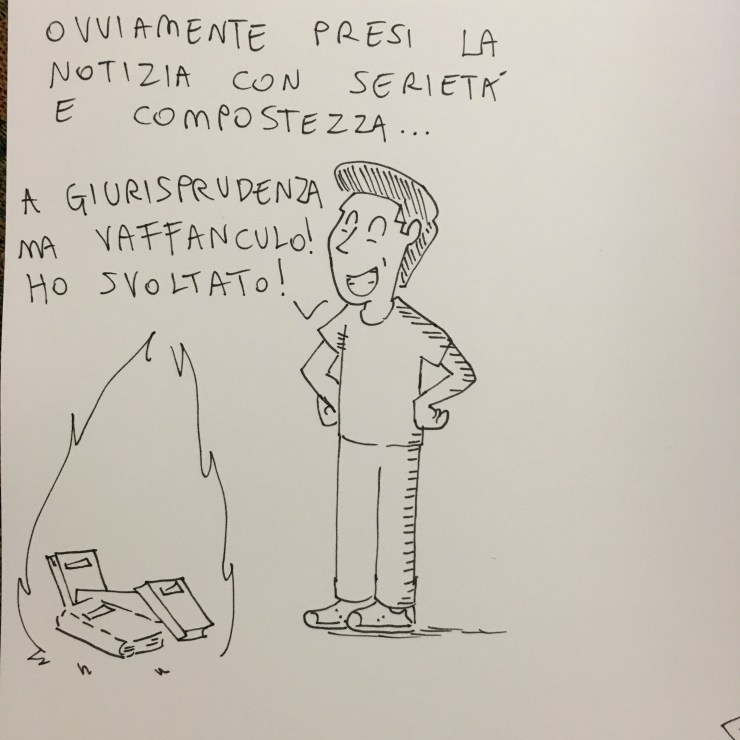 OVVIAMENTE PRESI LA
NOTIZIA CON SERIETÁ
E COMPOSTEZZA...
A GIURISPRUDENZA
MA VAFFANCULO!
HO SVOLTATO!